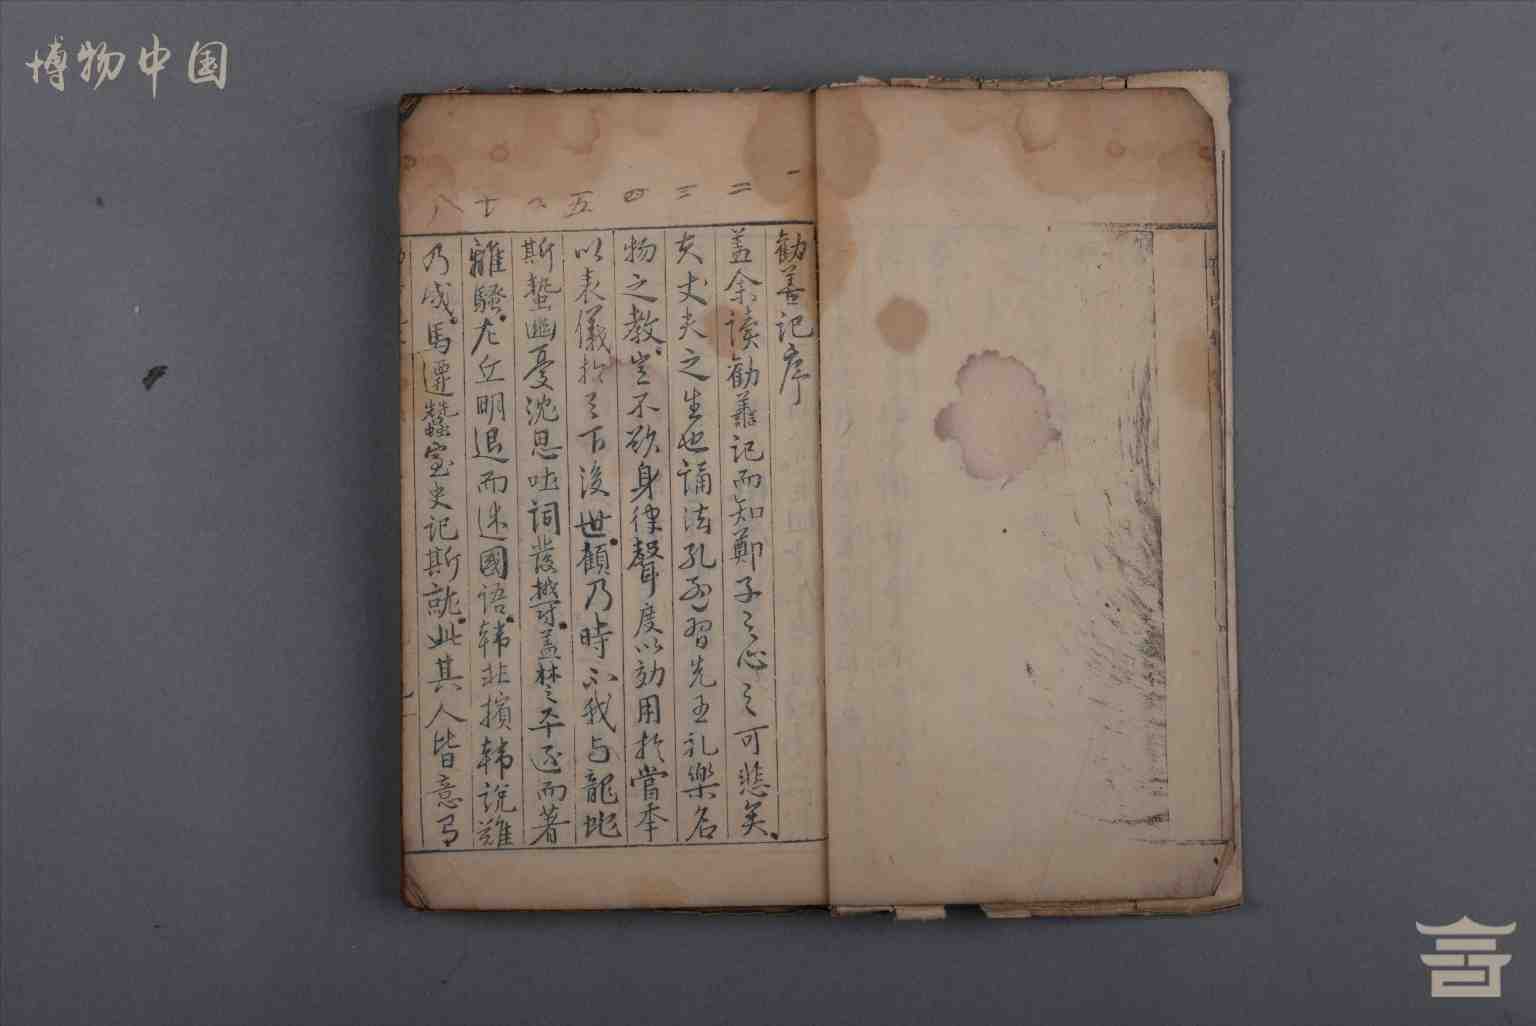 博物中国
一 二 三 四 五 六 七 八
勧善記序
盖余读勧善記而知鄭子之心之可悲矣
夫丈夫之生也誦法孔孟習先王礼樂名
物之教豈不欲身律聲度以効用於當年
以表儀於天下後世顧乃時不我与龍蛇
斯蟄幽憂沈思吐詞發撼盖林楚平逐而著
離騷左丘明退而述國語韩非擯韩說難
乃成馬遷蠶室史記斯就此其人皆意